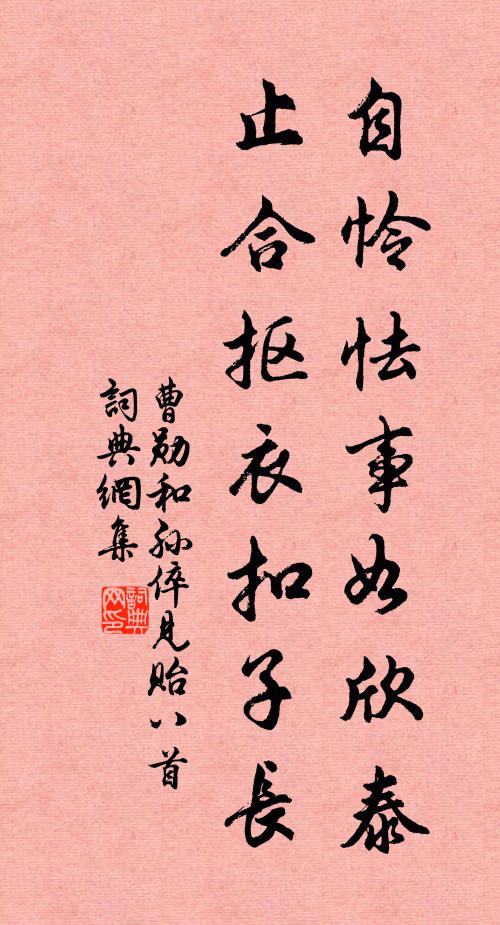 自怜怯事如欣泰
止合抠衣扣子長
曹勋和孙倅見贻八首
詞典網集
詞典网印